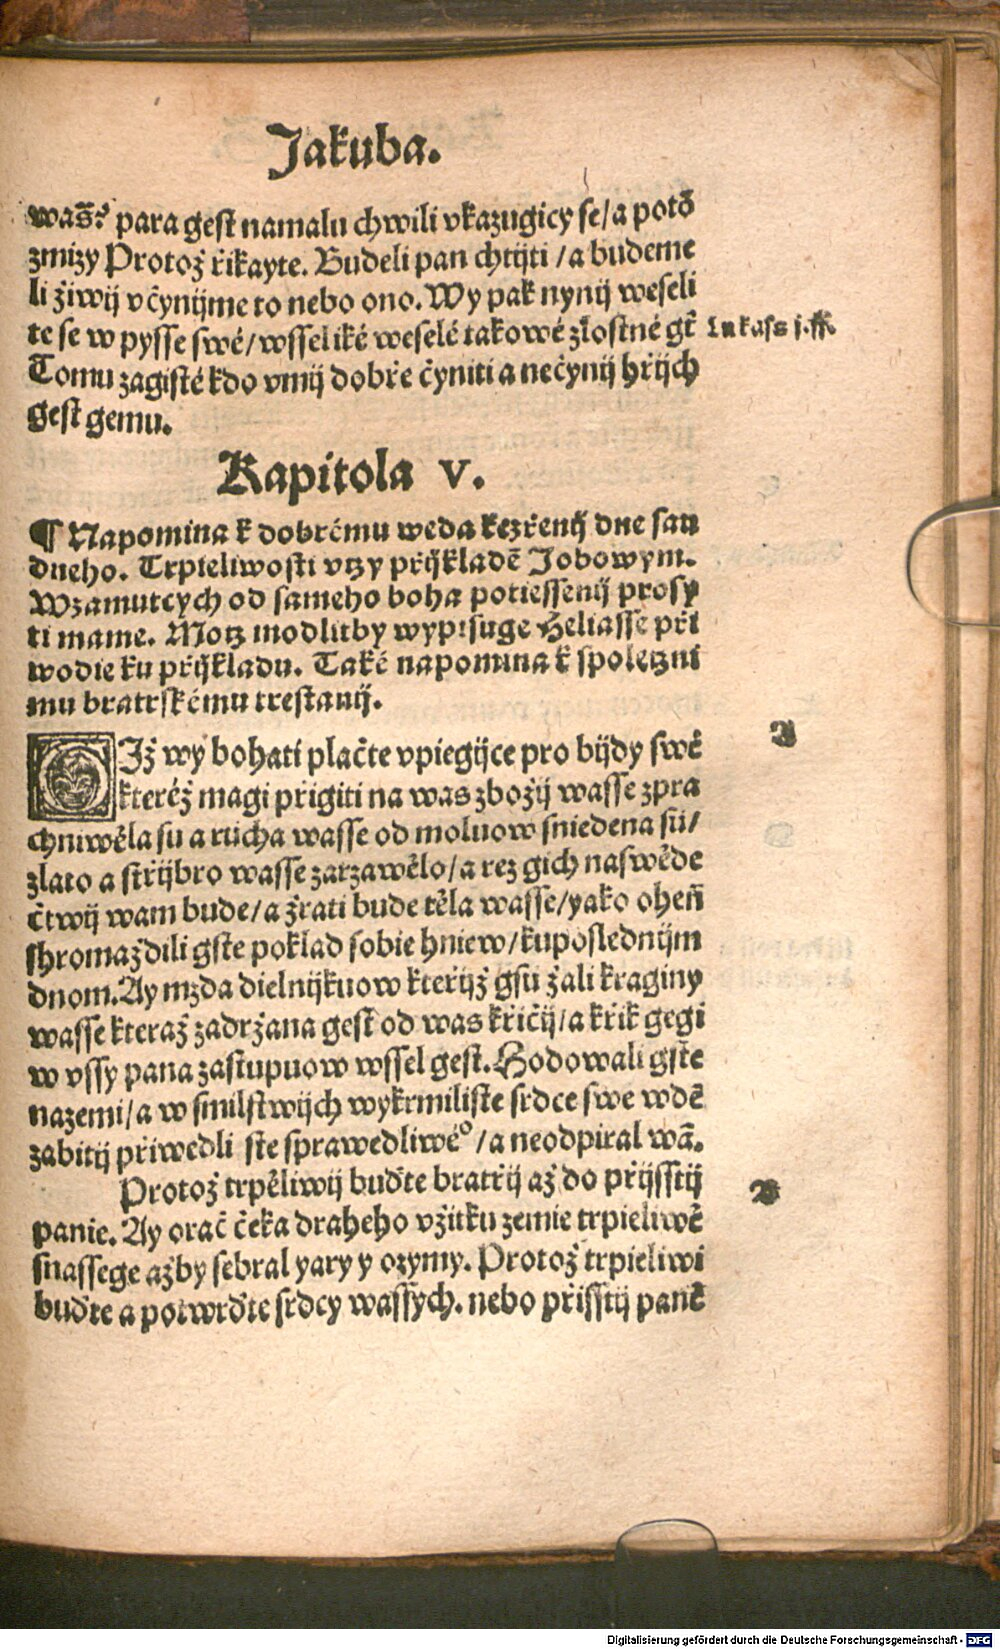 Jakuba.
was̄? para gest namalu chwili vkazugicy se/a potō
zmizy Protož řikayte. Budeli pan chtijti /a budeme
li žiwij včynijme to nebo ono. Wy pak nynij weseli
te se w pysse swé/wsseliké weselé takowé zlostné gt̄
Lukass j.ff.
Tomu zagisté kdo vmij dobře čyniti a nečynij hřijch
gest gemu.
Kapitola v.
¶ Napomina k dobrému weda kezřenij dne sau
dneho. Trpieliwosti vtzy přijkladē Jobowym.
Wzamutcych od sameho boha potiessenij prosy
ti mame. Motz modlitby wypisuge Heliasse při
wodie ku přijkladu. Také napomina k spoletzni
mu bratrskému trestanij.
A
OIž wy bohatí plačte vpiegijce pro bijdy swé
kteréž magi přigiti na was zbožij wasse zpra
chniwěla su a rucha wasse od moluow sniedena su/
zlato a střijbro wasse zarzawělo/a rez gich naswěde
čtwij wam bude/a žrati bude těla wasse/yako oheň
shromaždili gste poklad sobie hniew/kuposlednijm
dnom. Ay mzda dielnijkuow kteřijž gsu žali kraginy
wasse kteraž zadržana gest od was křičij/a křik gegi
w vssy pana zastupuow wssel gest. Hodowali gste
nazemi/a w smilstwijch wykrmiliste srdce swe wdē
zabitij přiwedli ste sprawedliwé°/a neodpiral wā.
B
Protož trpěliwij buďte bratřij až do přijsstij
panie. Ay orač čeka draheho vžitku zemie trpieliwě
snassege ažby sebral yary y ozymy. Protož trpieliwi
buďte a potwrďte srdcy wassych. nebo přisstij paně
Digitalisierung gefördert durch die Deutsche Forschungsgemeinschaft - DFG